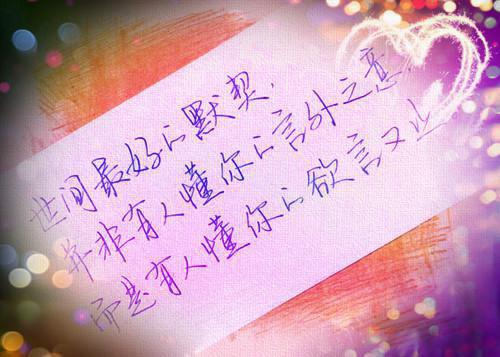 世间最好的默契,
并非有人懂你的言外之意,
而是有人懂你的欲言又止